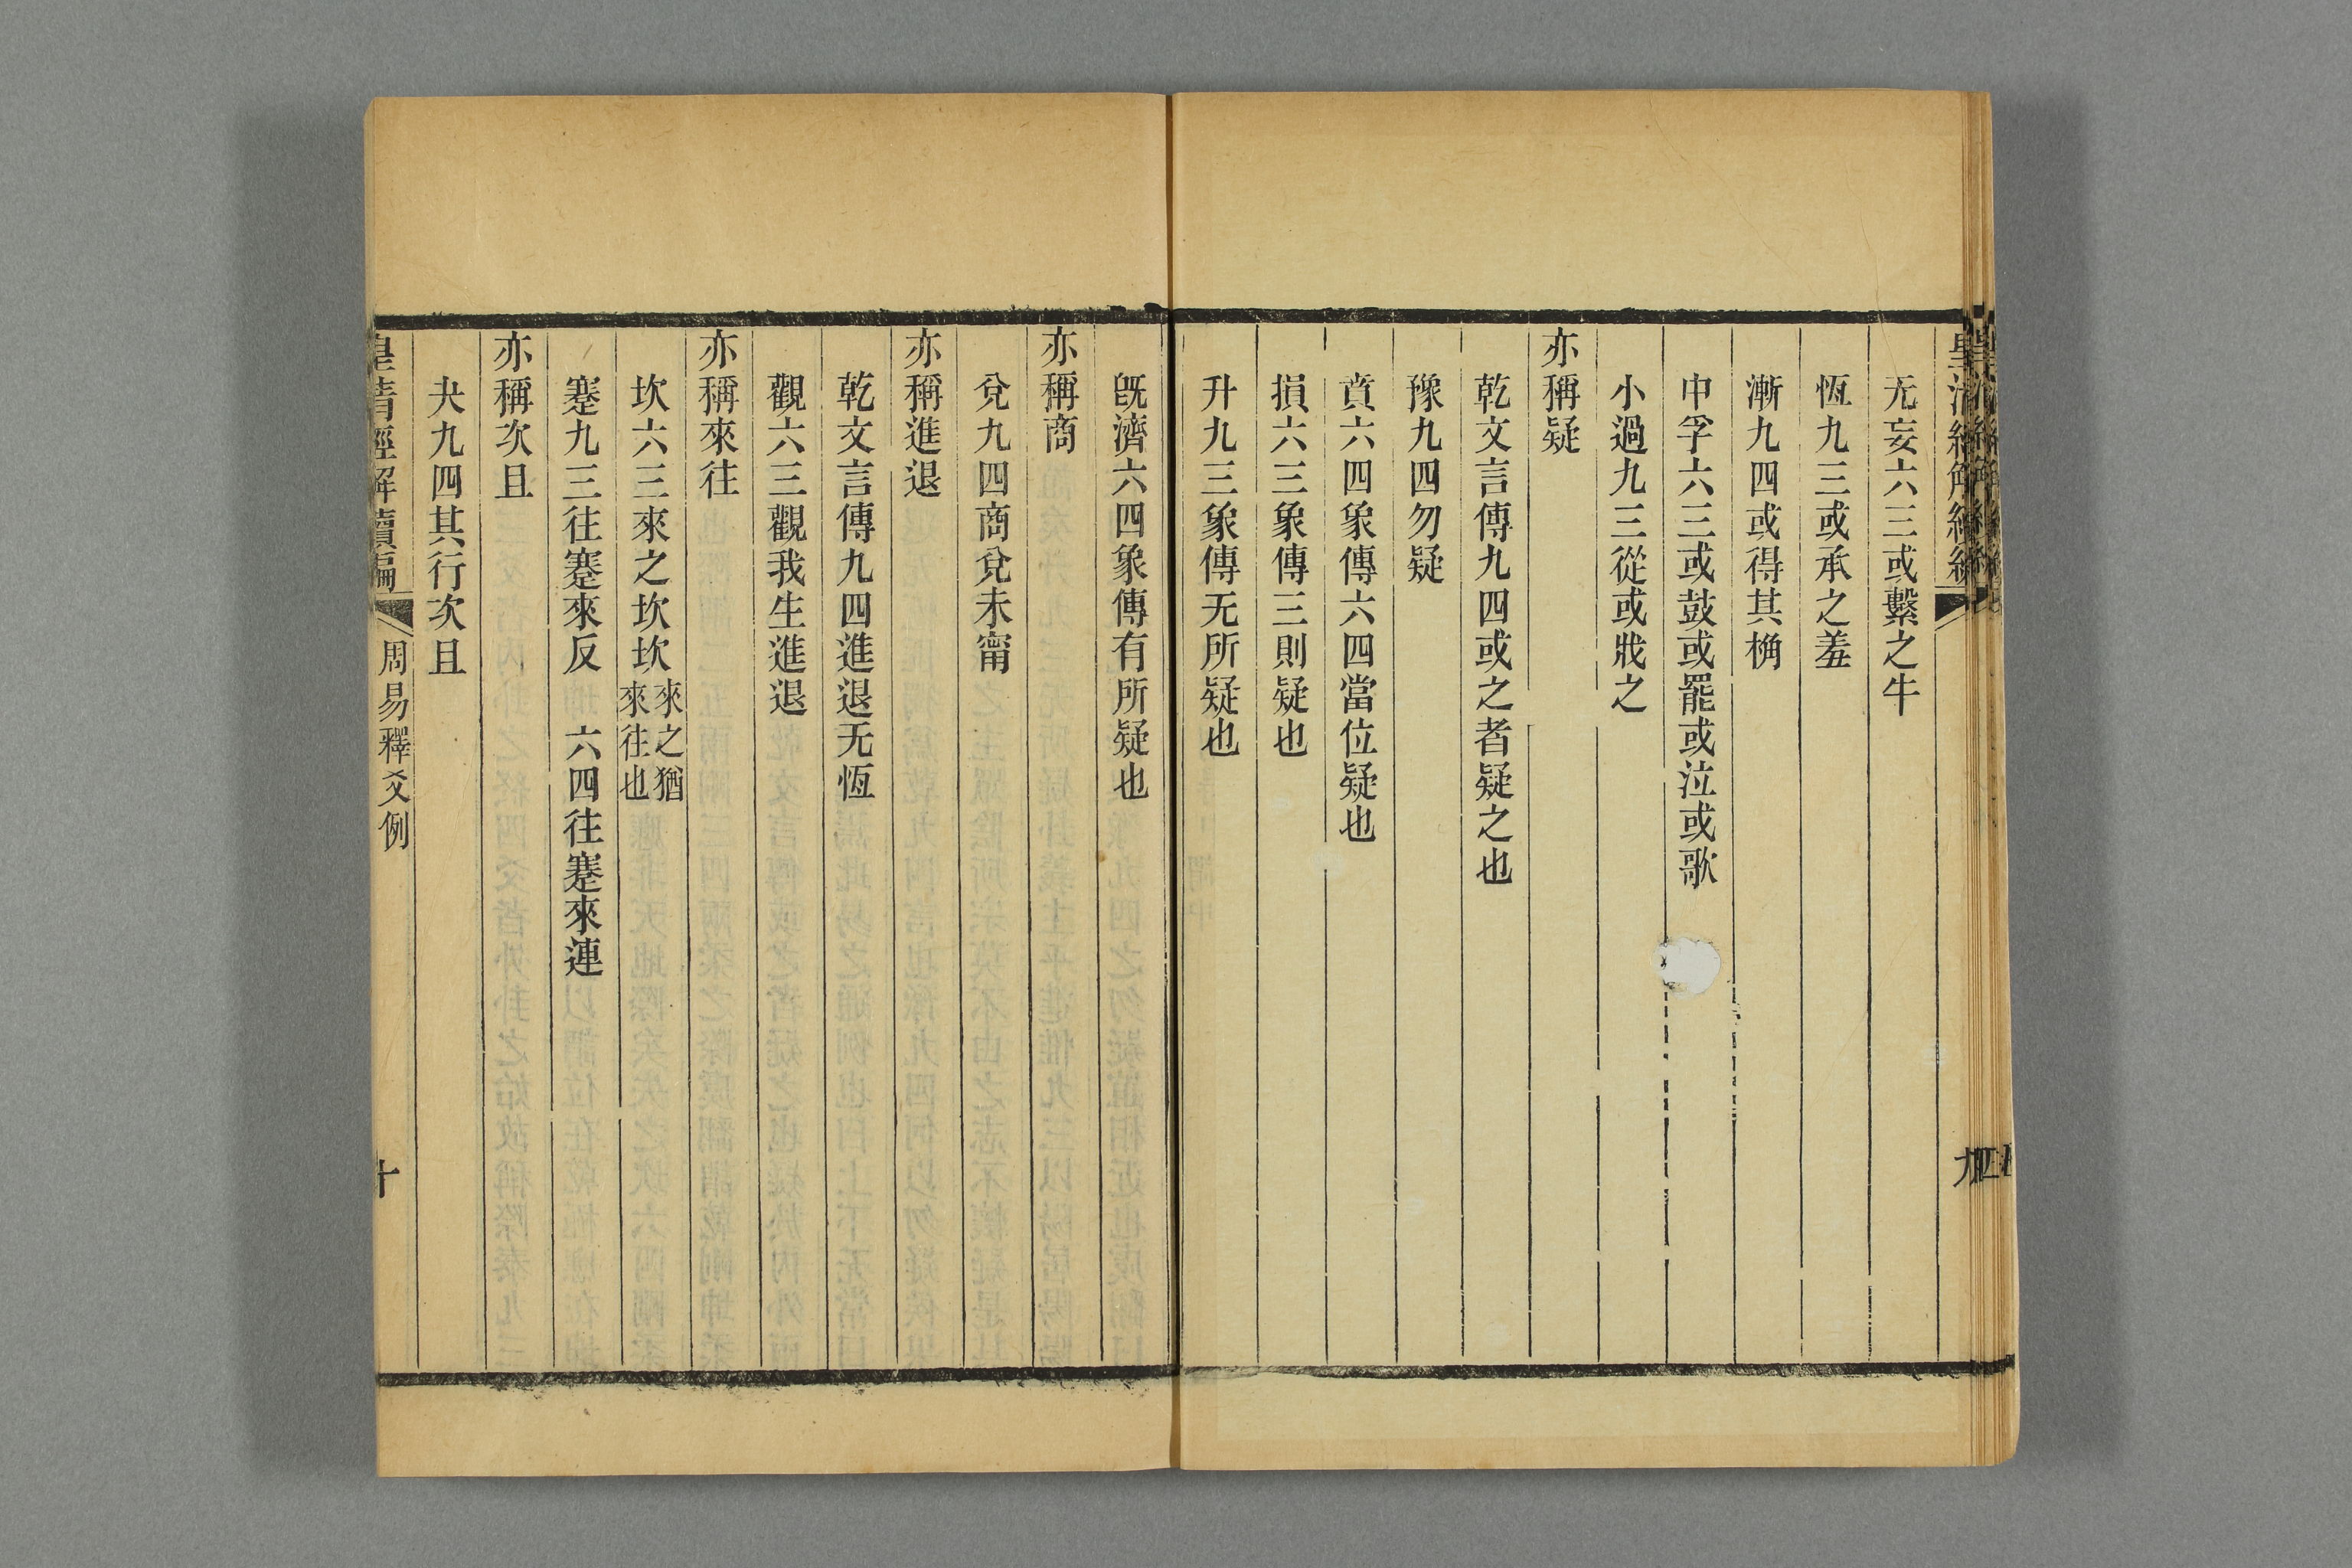 无妄六三或繫之牛
恆九三或承之羞
漸九四或得其桷
中孚六三或鼓或罷或泣或歌
小過九三從或戕之
亦稱疑
乾文言傳九四或之者疑之也
豫九四勿疑
賁六四象傳六四當位疑也
損六三象傳三則疑也
升九三象傳无所疑也
旣濟六四象傳有所疑也
亦稱商
兌九四商兌未甯
亦稱進退
乾文言傳九四進退无恆
觀六三觀我生進退
亦稱來往
坎六三來之坎坎來之猶來往也
蹇九三往蹇來反　六四往蹇來連
亦稱次且
夬九四其行次且
皇清經解續編　周易釋爻例　十